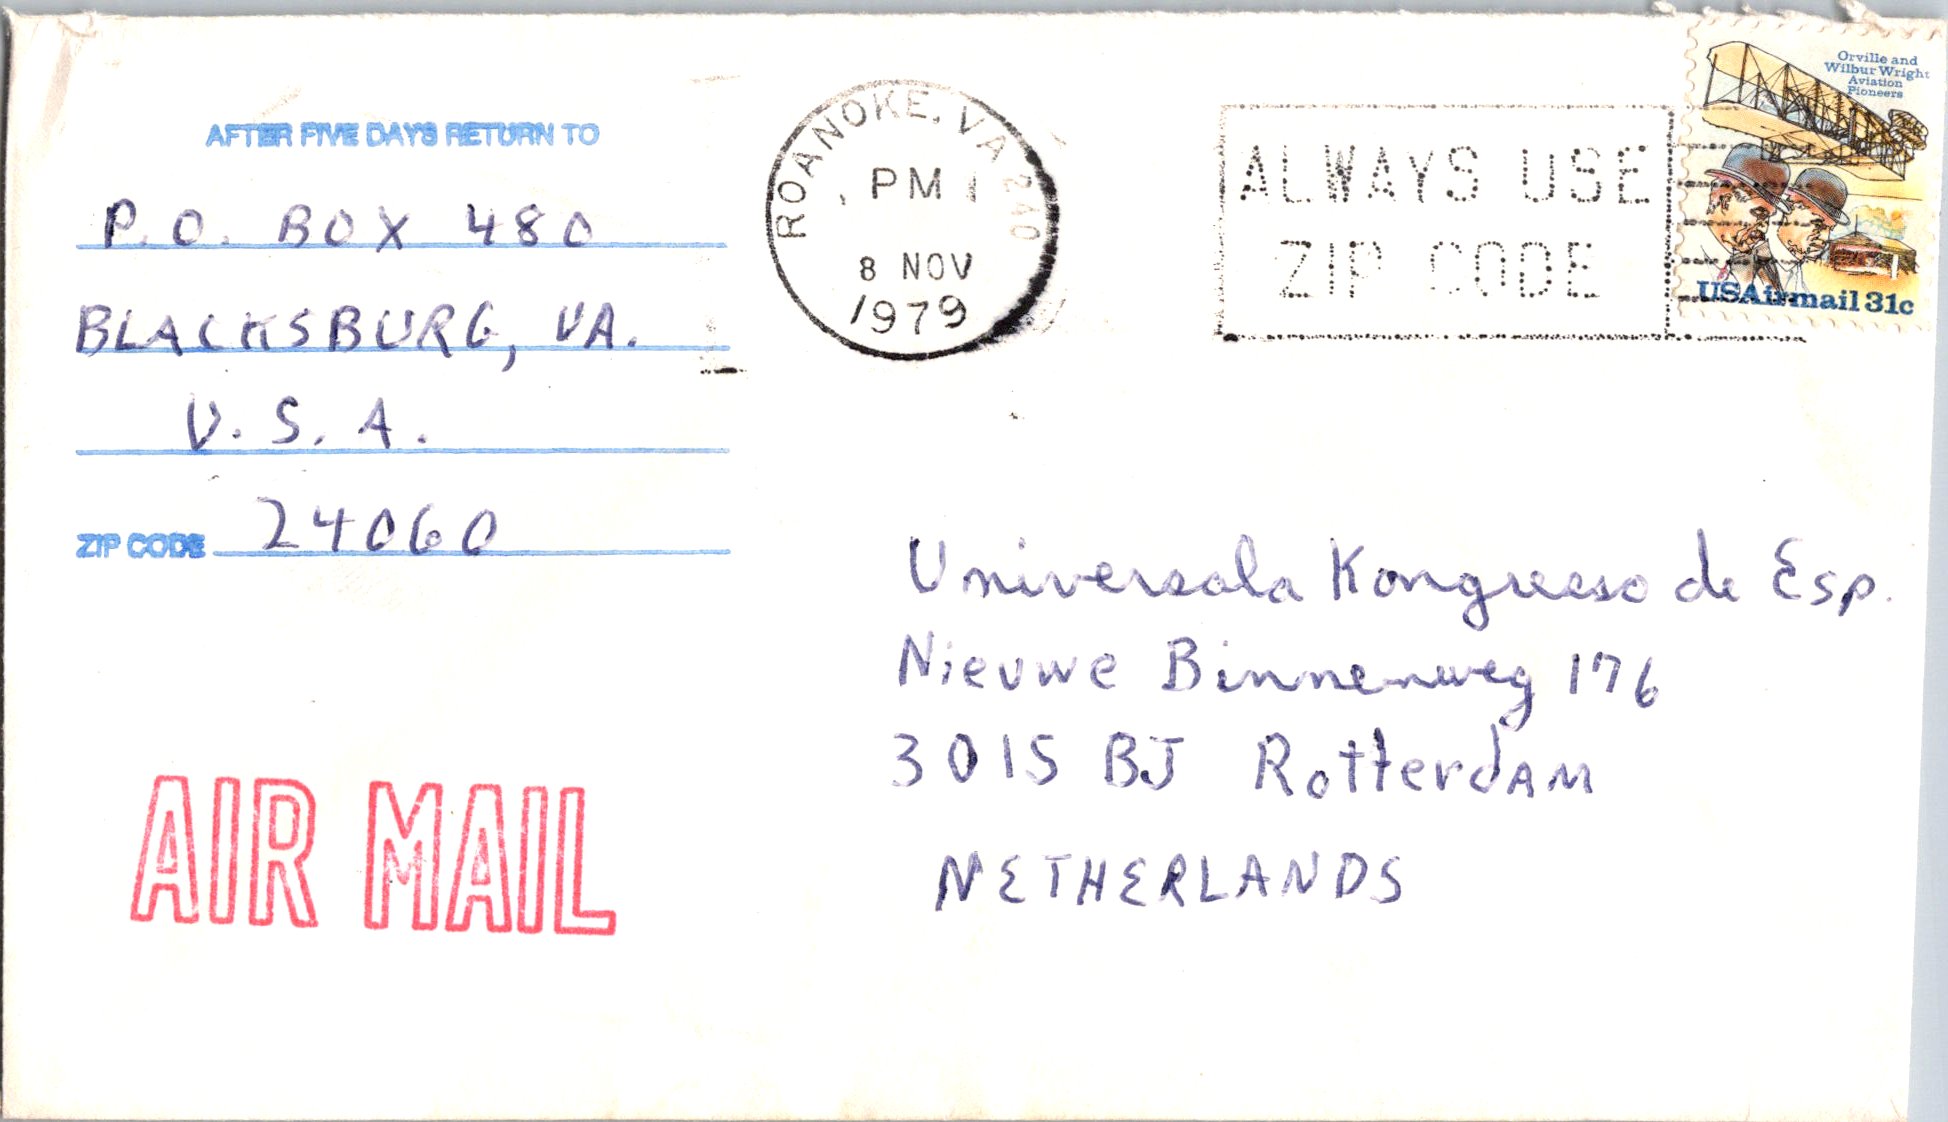 AFTER FIVE DAYS RETURN TO
P.O. BOX 480
BLACKSBURG, VA.
U.S.A.
ZIP CODE 24060
AIR MAIL
ROANOKE, VA 240
PM 1
8 NOV
1979
ALWAYS USE
ZIP CODE
Orville and
Wilbur Wright
Aviation
Pioneers
USAirmail 31c
Universala Kongreeso de Esp.
Nieuwe Binnenweg 176
3015 BJ Rotterdam
NETHERLANDS